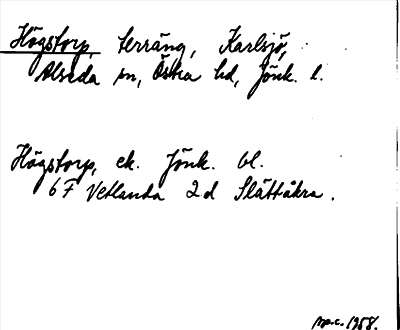 Högstorp, terräng, Karlsjö,
Alseda sn, Östra hd, Jönk. l.
Högstorp, ek. Jönk. bl.
6 F Vetlanda 2 d Slättåkra.
1958.